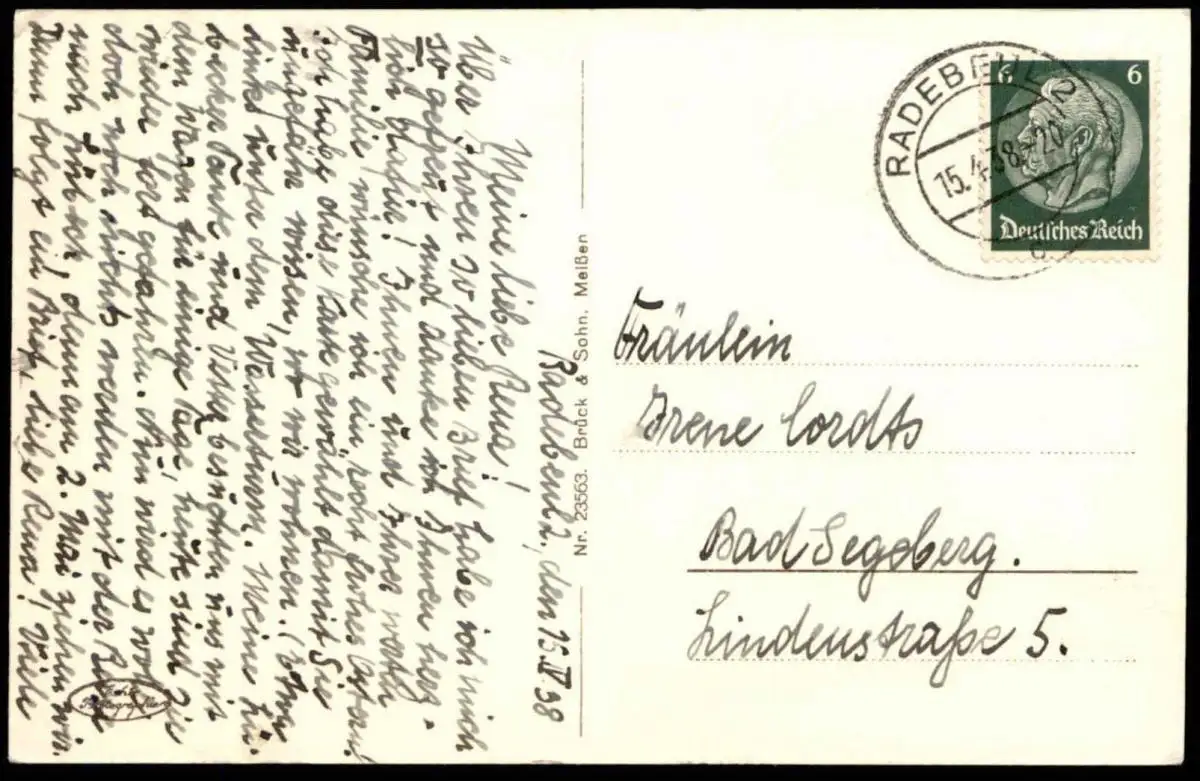 Radebeul 2, den 15. IV 38
Meine liebe Rena!
Über Ihren so lieben Brief habe ich mich
so gefreut und danke ich Ihnen herz-
lich dafür! Ihnen und Ihrer werten
Familie wünsche ich ein recht frohes Ostern!
Ich habe diese Karte gewählt damit Sie
ungefähr wissen, wo wir wohnen. (oben
links unter dem Wasserturm. Meine Lü-
becker Tante und Vetter besuchten uns mit
dem Wagen für einige Tage, heute sind sie
wieder fort gefahren. Nun wird es wohl
doch noch nichts werden mit der Reise
nach Lübeck, denn am 2. Mai ziehen wir.
Dann folgt ein Brief, liebe Rena! Viele
Echte
Photographie
Nr. 23563. Brück & Sohn, Meißen
RADEBEUL 2
15.4.38.-20
c
6 6
Deutsches Reich
Fräulein
Irene Cordts
Bad Segeberg.
Lindenstraße 5.